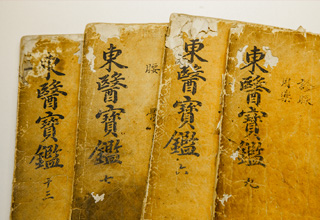 東醫寶鑑
十三
東醫寶鑑
七
東醫寶鑑
六
東醫寶鑑
九